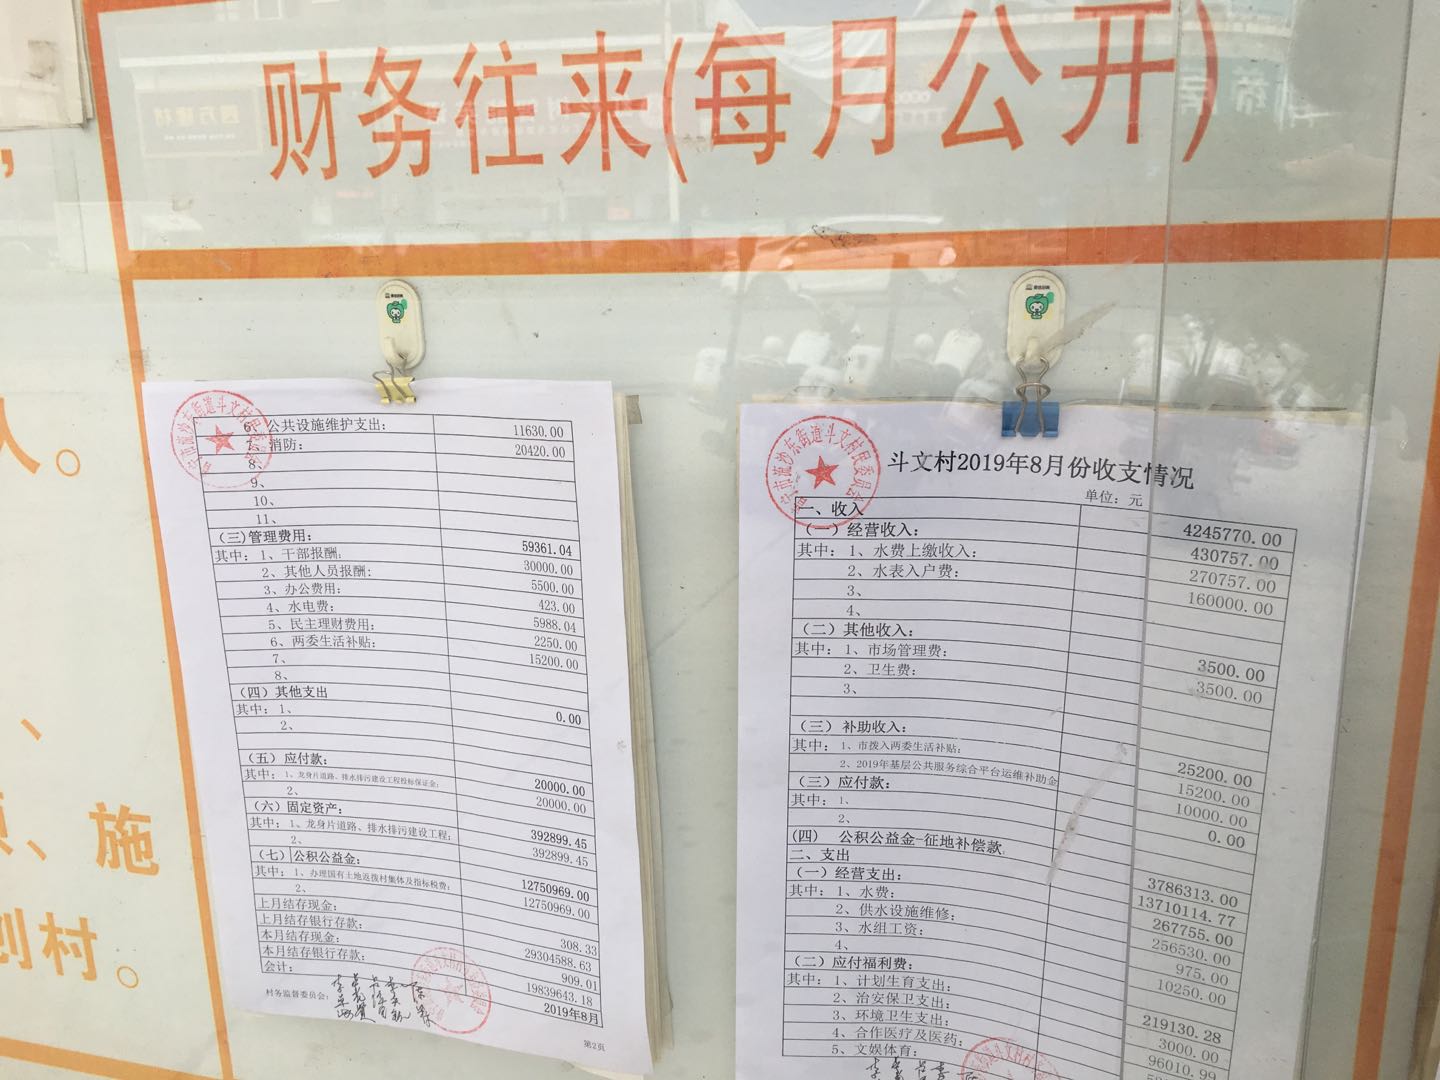 财务往来(每月公开)
人。
、施
创村。
6、公共设施维护支出: 11630.00
7、消防: 20420.00
8、
9、
10、
11、
(三)管理费用: 59361.04
其中: 1、干部报酬: 30000.00
2、其他人员报酬: 5500.00
3、办公费用: 423.00
4、水电费: 5988.04
5、民主理财费用: 2250.00
6、两委生活补贴: 15200.00
7、
8、
(四)其他支出 0.00
其中: 1、
2、
(五)应付款: 20000.00
其中: 1、龙身片道路、排水排污建设工程投标保证金: 20000.00
2、
(六)固定资产: 392899.45
其中: 1、龙身片道路、排水排污建设工程: 392899.45
2、
(七)公积公益金: 12750969.00
其中: 1、办理国有土地返拨村集体及指标税费: 12750969.00
2、
上月结存现金: 308.33
上月结存银行存款: 29304588.63
本月结存现金: 909.01
本月结存银行存款: 19839643.18
会计: 2019年8月
村务监督委员会:
第2页
市流沙东街道斗文村民委员会
斗文村2019年8月份收支情况
单位: 元
一、收入 4245770.00
(一)经营收入: 430757.00
其中: 1、水费上缴收入: 270757.00
2、水表入户费: 160000.00
3、
4、
(二)其他收入: 3500.00
其中: 1、市场管理费: 3500.00
2、卫生费:
3、
(三)补助收入: 25200.00
其中: 1、市拨入两委生活补贴: 15200.00
2、2019年基层公共服务综合平台运维补助金 10000.00
(三)应付款: 0.00
其中: 1、
2、
(四) 公积公益金-征地补偿款 3786313.00
二、支出 13710114.77
(一)经营支出: 267755.00
其中: 1、水费: 256530.00
2、供水设施维修: 975.00
3、水组工资: 10250.00
4、
(二)应付福利费: 219130.28
其中: 1、计划生育支出: 3000.00
2、治安保卫支出: 96010.99
3、环境卫生支出:
4、合作医疗及医药:
5、文娱体育: